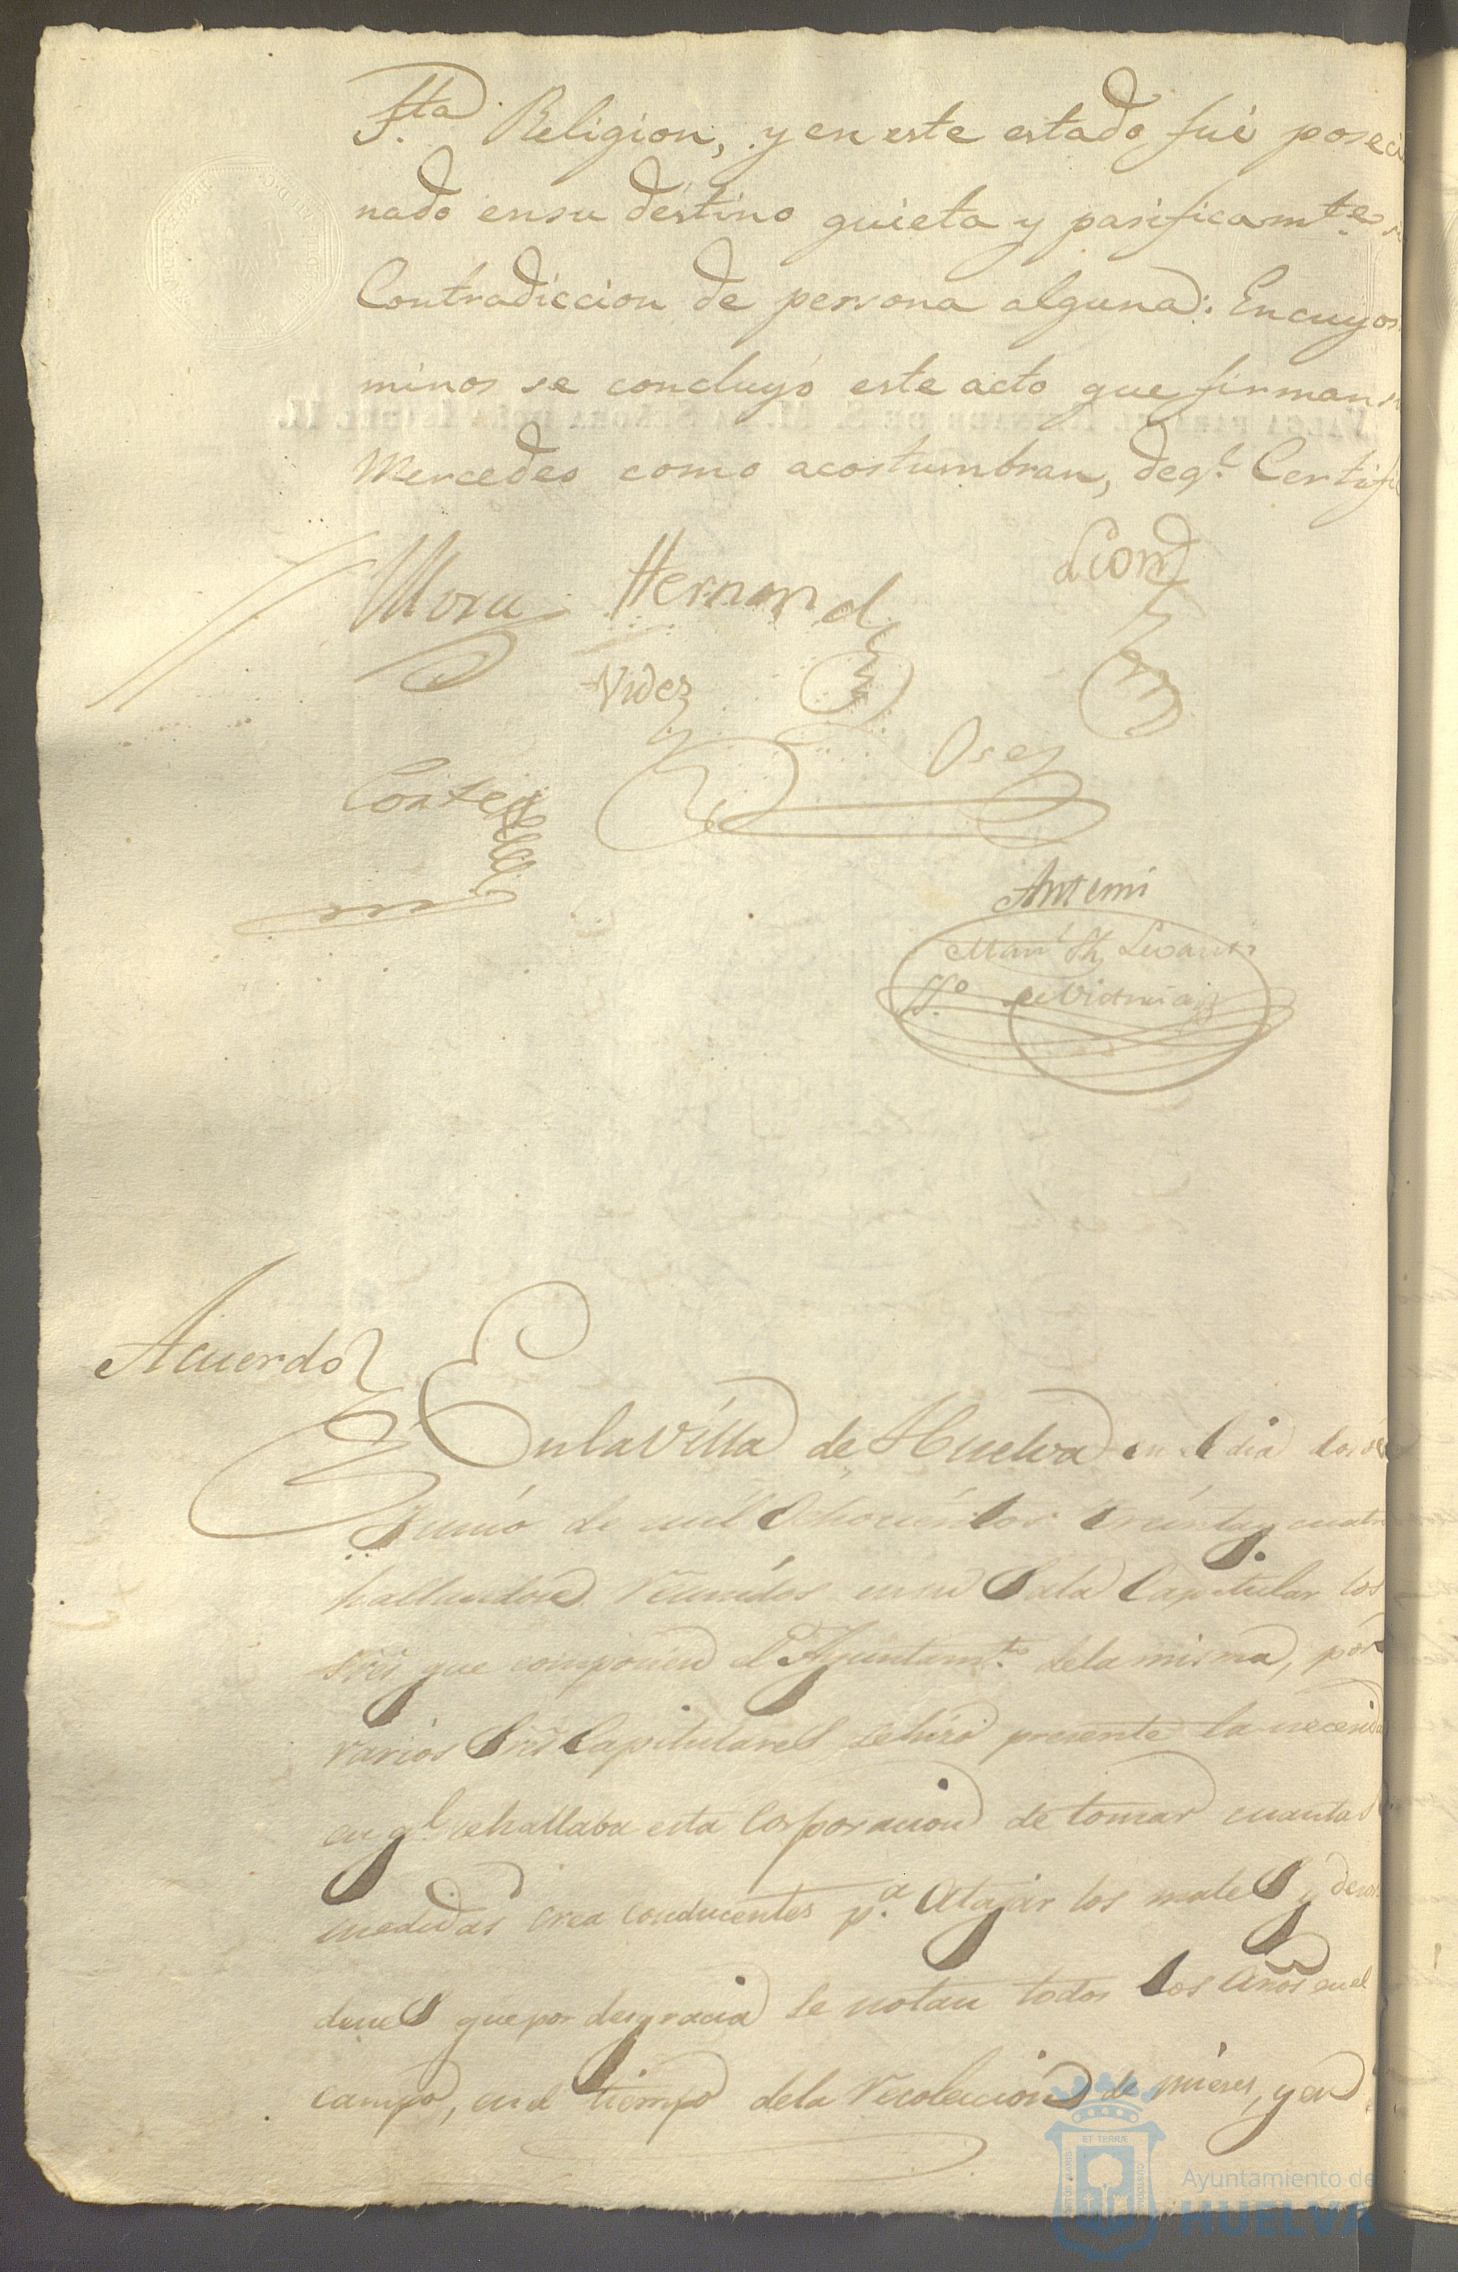 Sta Religion, y en este estado fué poseci
nado ensu destino quieta y pasificamte
Contradiccion de persona alguna: En cuyos
minos se concluyó este acto que firman
Mercedes como acostumbran, deql Certifi
Mora Hernand Lion
Videz
Osez
Cortes
Ante mi
Acuerdo
En la Villa de Huelva en el dia dos de
Junio de mil Ochocientos treinta y cuatro
hallandose reunidos en su Sala Capitular los
Sres que componen el Ayuntamto dela misma, por
varios Sres Capitulares se hizo presente la necesida
en ql se hallaba esta Corporacion de tomar cuantas
medidas crea conducentes pa Atajar los males y desor
denes que por desgracia se notan todos los Años en el
campo, en el tiempo dela recoleccion de mieses, y en
ET TERRÆ
Ayuntamiento de
HUELVA